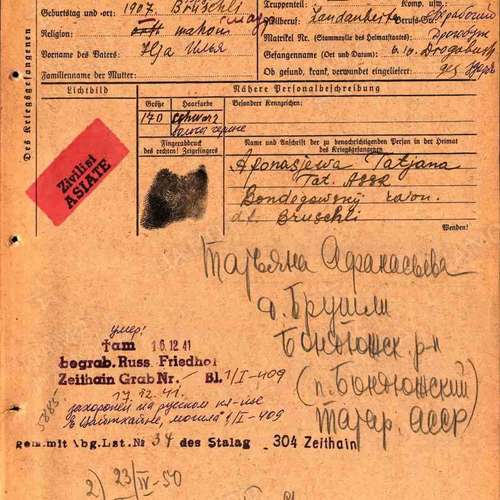 Truppenteil:
Komp. usw.:
Geburtstag und -ort: 1907 Brüschli
Zivilberuf: Landarbeiter
Religion: mahom
Matrikel Nr. (Stammrolle des Heimatstaates)
Vorname des Vaters: Ilja Илья
Gefangennahme (Ort und Datum): 6.10. Drogobusch
Familienname der Mutter:
Ob gesund, krank, verwundet eingeliefert:
Des Kriegsgefangenen
Lichtbild
Nähere Personalbeschreibung
Größe
Haarfarbe
Besondere Kennzeichen:
170
schwarz
Fingerabdruck des rechten! Zeigefingers
Name und Anschrift der zu benachrichtigenden Person in der Heimat des Kriegsgefangenen
Zivilist
ASIATE
Afonasjewa Tatjana
Tat. ASSR
Bondegowsky raion.
d. Bruschli
Wenden!
Татьяна Афанасьева
д. Брушли
Бонюжск. р-н
(п. Бондюжский)
Татар. АССР
умер!
†am 16.12.41
begrab. Russ. Friedhof
Zeithain Grab Nr. Bl. 1/I-409
17.12.41.
захоронен на русском кл-ще
в Цайтхайне, могила 1/I-409
5885
Gem. mit Abg.Lst. Nr 34 des Stalag 304 Zeithain
2) 23/IV-50